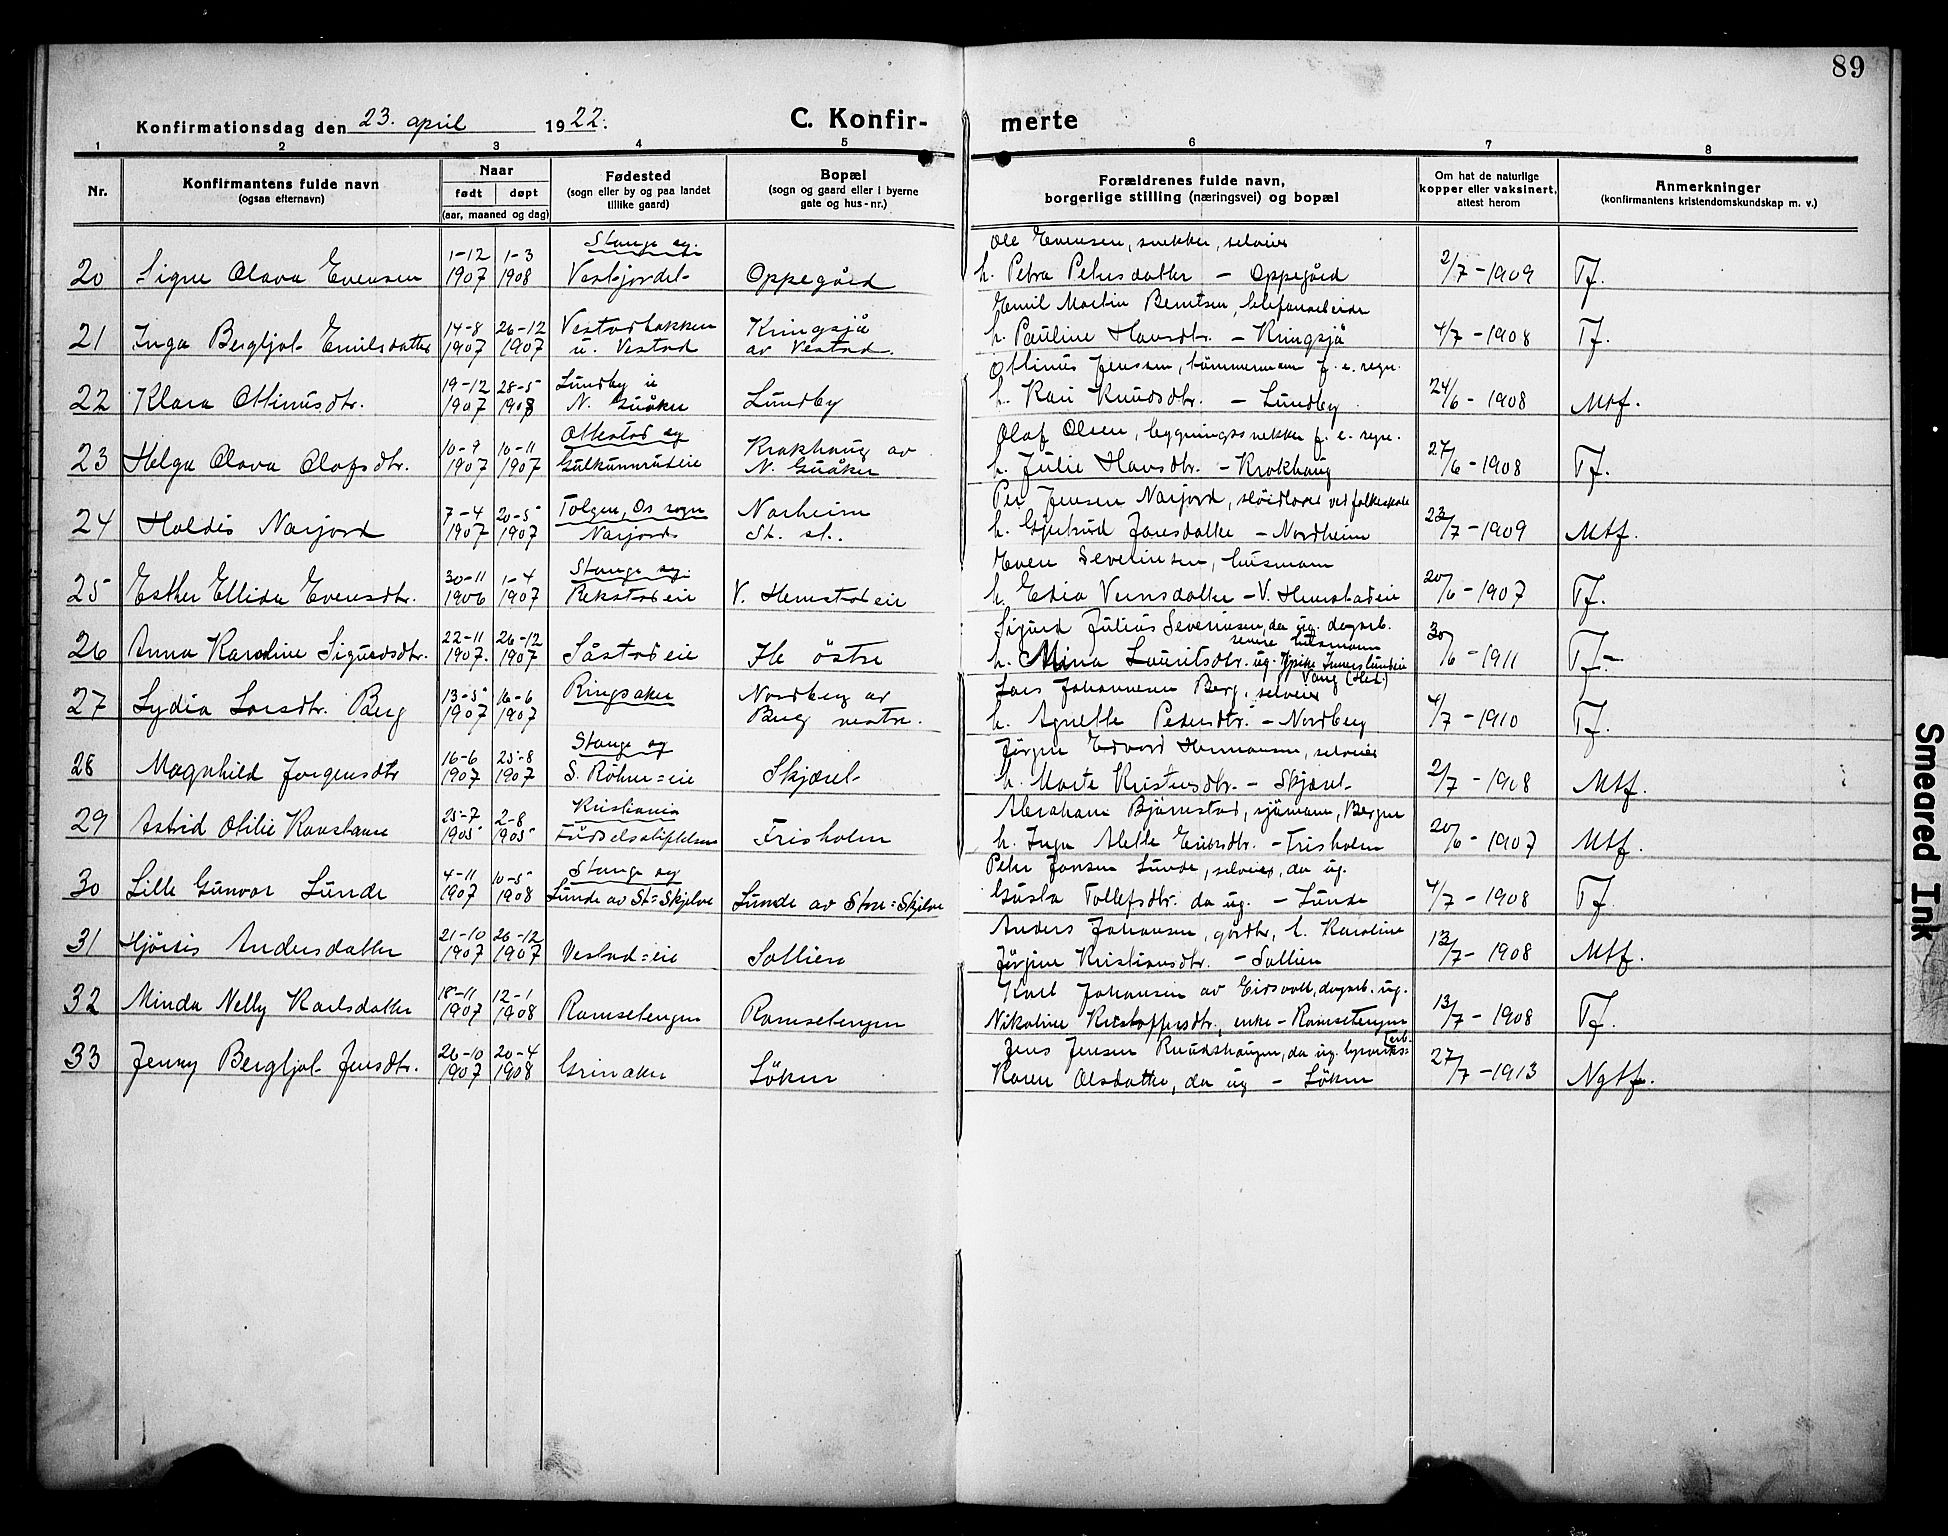 89
Konfirmationsdag den 23. april 1922.
C. Konfir-
merte
1 2 3 4 5 6 7 8
Nr.
Konfirmantens fulde navn
(ogsaa efternavn)
Naar
født døpt
(aar, maaned og dag)
Fødested
(sogn eller by og paa landet
tillike gaard)
Bopæl
(sogn og gaard eller i byerne
gate og hus-nr.)
Forældrenes fulde navn,
borgerlige stilling (næringsvei) og bopæl
Om hat de naturlige
kopper eller vaksinert,
attest herom
Anmerkninger
(konfirmantens kristendomskundskap m. v.)
1-12 1-3 Stange og Ole Evensen, snekker, selveier
20 Signe Olava Evensen 1907 1908 Vestfjordet Oppegård h. Petra Petersdatter - Oppegård 2/7-1909 Tf.
14-8 26-12 Vestadbakken Kringsjå Emil Martin Berntsen, telefonarbeider
21 Inga Bergljot Emilsdatter 1907 1907 u. Vestad av Vestad. h. Pauline Hansdtr. - Kringsjå 4/7-1908 Tf.
19-12 28-5 Lundby u Ottinus Jensen, tømmermann f. e. regn.
22 Klara Ottinusdtr. 1907 1908 N. Guåker Lundby h. Kari Knudsdtr. - Lundby 24/6-1908 Mtf.
10-9 10-11 Ottestad og Krakhaug av Olaf Olsen, bygningssnekker f. e. regn.
23 Helga Olava Olafsdtr. 1907 1907 Gulkunnrudeie N. Guåker h. Julie Hansdtr. - Krokhaug 27/6-1908 Tf.
7-4 20-5 Tolgen, Os sogn Norheim Per Jensen Narjord, sløidlærer ved folkeskole
24 Haldis Narjord 1907 1907 Narjord St. st. h. Gjertrud Jonsdatter - Nordheim 23/7-1909 Mtf.
30-11 1-4 Stange og Even Severinsen, husmann
25 Esther Ellida Evensdtr. 1906 1907 Rekstadeie V. Hemstadeie h. Edia Vernsdatter - V. Hemstadeie 20/6-1907 Tf.
22-11 26-12 Sigurd Julius Severinsen, da ug. dagarb.
senere husmann
26 Anna Karoline Sigurdsdtr. 1907. 1907 Såstadeie Ile østre h. Mina Lauritsdtr. ug. pike Imerslundeie 30/6-1911 Tf-
Vang (Hed.)
13-5 16-6 Ringsaker Nordberg av Lars Johannesen Berg, selveier
27 Lydia Larsdtr. Berg 1907 1907 Berg vestre. h. Agnethe Pedersdtr. - Nordberg 4/7-1910 Tf.
16-6 25-8 Stange og Jørgen Edvard Hermansen, selveier
28 Magnhild Jørgensdtr 1907 1907 S. Röhne=eie Skjæset h. Marte Kristensdtr. - Skjæset 2/7-1908 Mtf.
25-7 2-8 Kristiania Abraham Bjørnstad, sjømann, Bergen
29 Astrid Otilie 1905 1905 Fødselsstiftelsen Frisholm h. Inga Alette Eriksdtr. - Frisholm 20/6-1907 Mtf.
4-11 10-5 Stange og Peter Jansen Lunde, selveier, da ug.
30 Lille Gunvor Lunde 1907 1908 Lunde av St=Skjelve Lunde av Store=Skjelve Gusta Tollefsdtr. da ug. - Lunde 4/7-1908 Tf.
21-10 26-12 Anders Johansen, gårdbr, h. Karoline
31 Hjørdis Andersdatter 1907 1907 Vestad=eie Sollien Jørgine Kristiansdtr. - Sollien 13/7-1908 Mtf.
18-11 12-1 Karl Johansen av Eidsvoll, dagarb. ug.
32 Minda Nelly Karlsdatter 1907 1908 Ramsetengen Ramsetengen Nikoline Kristoffersdtr., enke - Ramsetengen 13/7-1908 Tf.
26-10 20-4 Jens Jensen Knudshaugen, da ug. lysverks=arb.
33 Jenny Bergljot Jensdtr. 1907 1908 Grinaker Löken Karen Olsdatter, da ug - Löken 27/7-1913 Ngtf.
Smeared Ink